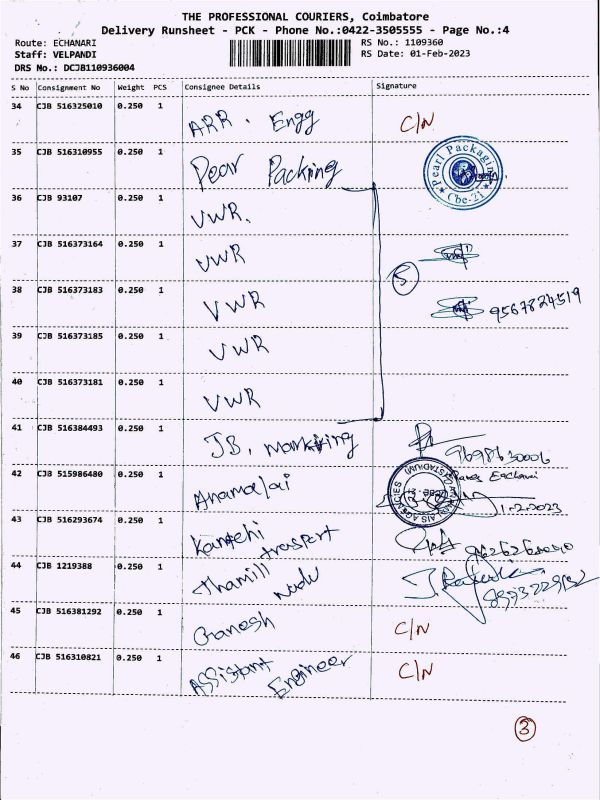 THE PROFESSIONAL COURIERS, Coimbatore
Delivery Runsheet - PCK - Phone No.:0422-3505555 - Page No.:4
Route: ECHANARI RS No.: 1109360
Staff: VELPANDI RS Date: 01-Feb-2023
DRS No.: DCJB110936004
S No Consignment No Weight PCS Consignee Details Signature
34 CJB 516325010 0.250 1 ARR. Engg C/N
35 CJB 516310955 0.250 1 Pear Packing Pearl Packaging Cbe-21
36 CJB 93107 0.250 1 VWR.
37 CJB 516373164 0.250 1 VWR
5
38 CJB 516373183 0.250 1 VWR 9567824519
39 CJB 516373185 0.250 1 VWR
40 CJB 516373181 0.250 1 VWR
41 CJB 516384493 0.250 1 JB. marking 9698630006
42 CJB 515986480 0.250 1 Anamalai AGENCIES (STADIUM) 1.2.2023
43 CJB 516293674 0.250 1 Kanchi trasport
44 CJB 1219388 0.250 1 Thamill nadu
45 CJB 516381292 0.250 1 Ganesh C/N
46 CJB 516310821 0.250 1 Assistant Engineer C/N
3